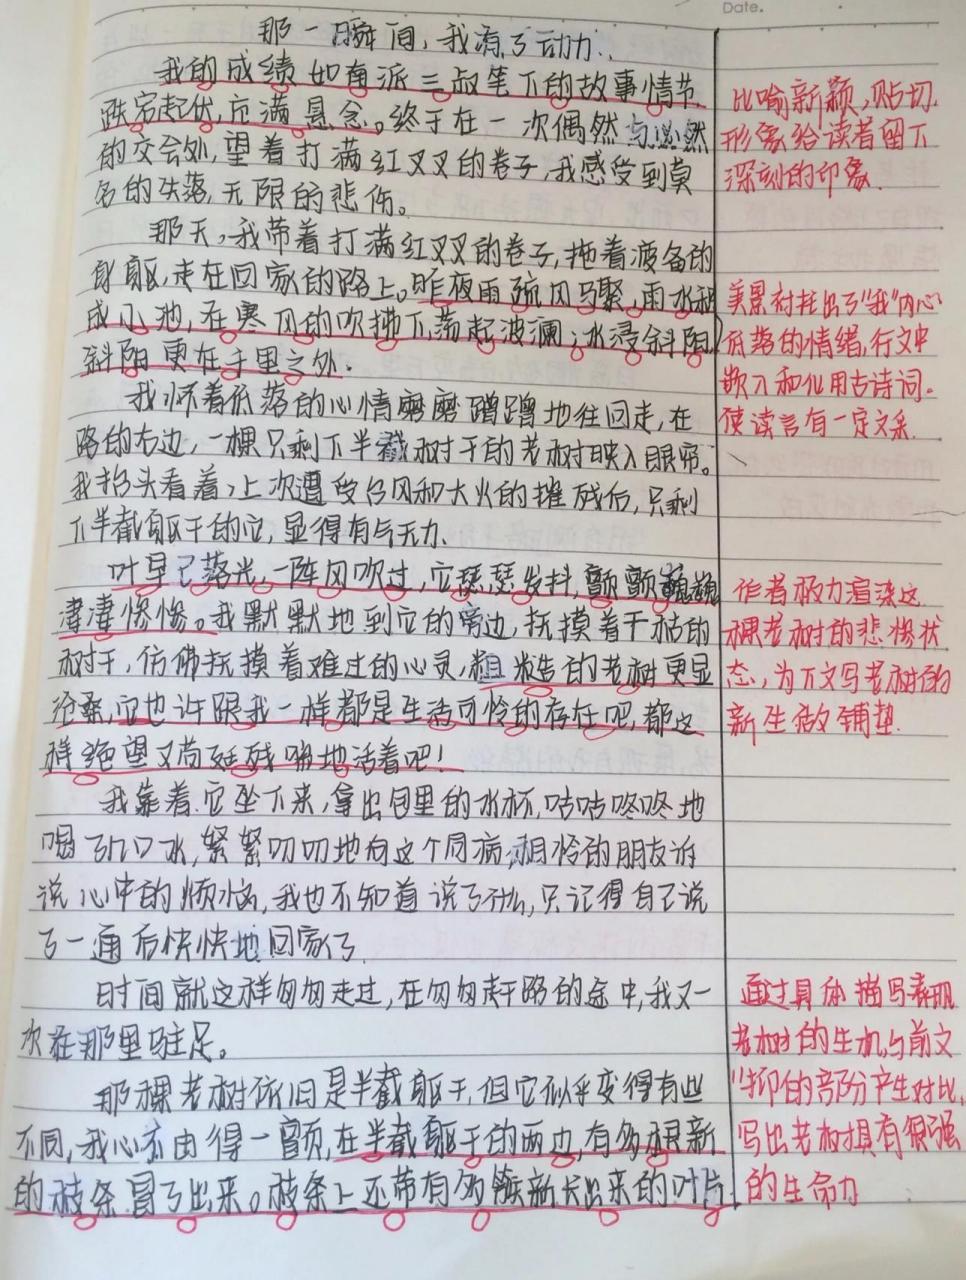 Date.
那一瞬间,我有了动力.
我的成绩如南派三叔笔下的故事情节,
跌宕起伏,充满悬念。终于在一次偶然与必然
的交会处,望着打满红叉叉的卷子,我感受到莫
名的失落,无限的悲伤。
那天,我带着打满红叉叉的卷子,拖着疲备的
身躯,走在回家的路上。昨夜雨疏风骤,雨水积
成小池,在寒风的吹拂下,荡起波澜;水浸斜阳,
斜阳更在千里之外.
我怀着低落的心情磨磨蹭蹭地往回走,在
路的右边,一棵只剩下半截树干的老树映入眼帘。
我抬头看着,上次遭受台风和大火的摧残后,只剩
下半截躯干的它,显得有气无力.
叶早已落光,一阵风吹过,它瑟瑟发抖,颤颤巍巍
凄凄惨惨。我默默地到它的旁边,抚摸着干枯的
树干,仿佛抚摸着难过的心灵,粗糙的老树更显
沧桑,它也许跟我一样都是生活可怜的存在吧,都这
样绝望又苟延残喘地活着吧!
我靠着它坐下来,拿出包里的水杯,咕咕咚咚地
喝了几口水,絮絮叨叨地向这个同病相怜的朋友诉
说心中的烦恼,我也不知道说了什么,只记得自己说
了一通后快快地回家了.
时间就这样匆匆走过,在匆匆赶路的途中,我又一
次在那里驻足。
那棵老树依旧是半截躯干,但它似乎变得有些
不同,我心不由得一颤,在半截躯干的两边,有多根新
的枝条冒了出来。枝条上还带有多簇新长出来的叶片
比喻新颖,贴切
形象给读者留下
深刻的印象.
美景衬托出了"我"内心
低落的情绪,行文中
嵌入和化用古诗词。
使语言有一定文采.
作者极力渲染这
棵老树的悲惨状
态,为下文写老树的
新生做铺垫.
通过具体描写表现
老树的生机与前文
抑的部分产生对比,
写出老树具有很强
的生命力